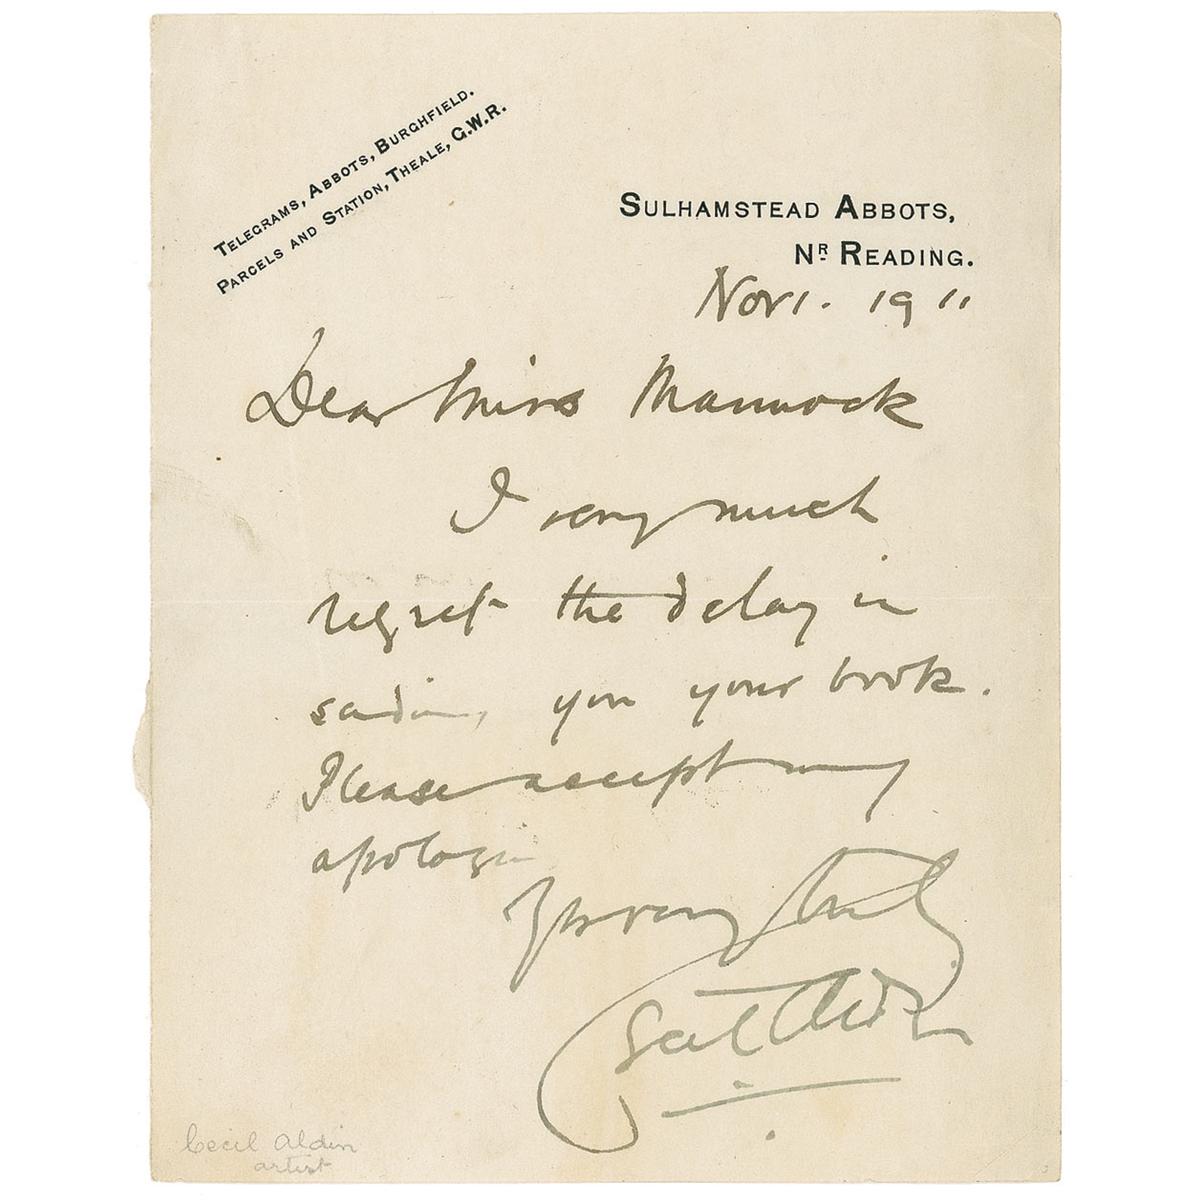 TELEGRAMS, ABBOTS, BURGHFIELD.
PARCELS AND STATION, THEALE, G.W.R.
SULHAMSTEAD ABBOTS,
Nr READING.
Nov 1. 1911
Dear Miss Mannock
I very much
regret the delay in
sending you your book.
Please accept my
apologies
Yrs very truly
Cecil Aldin
Cecil Aldin
artist